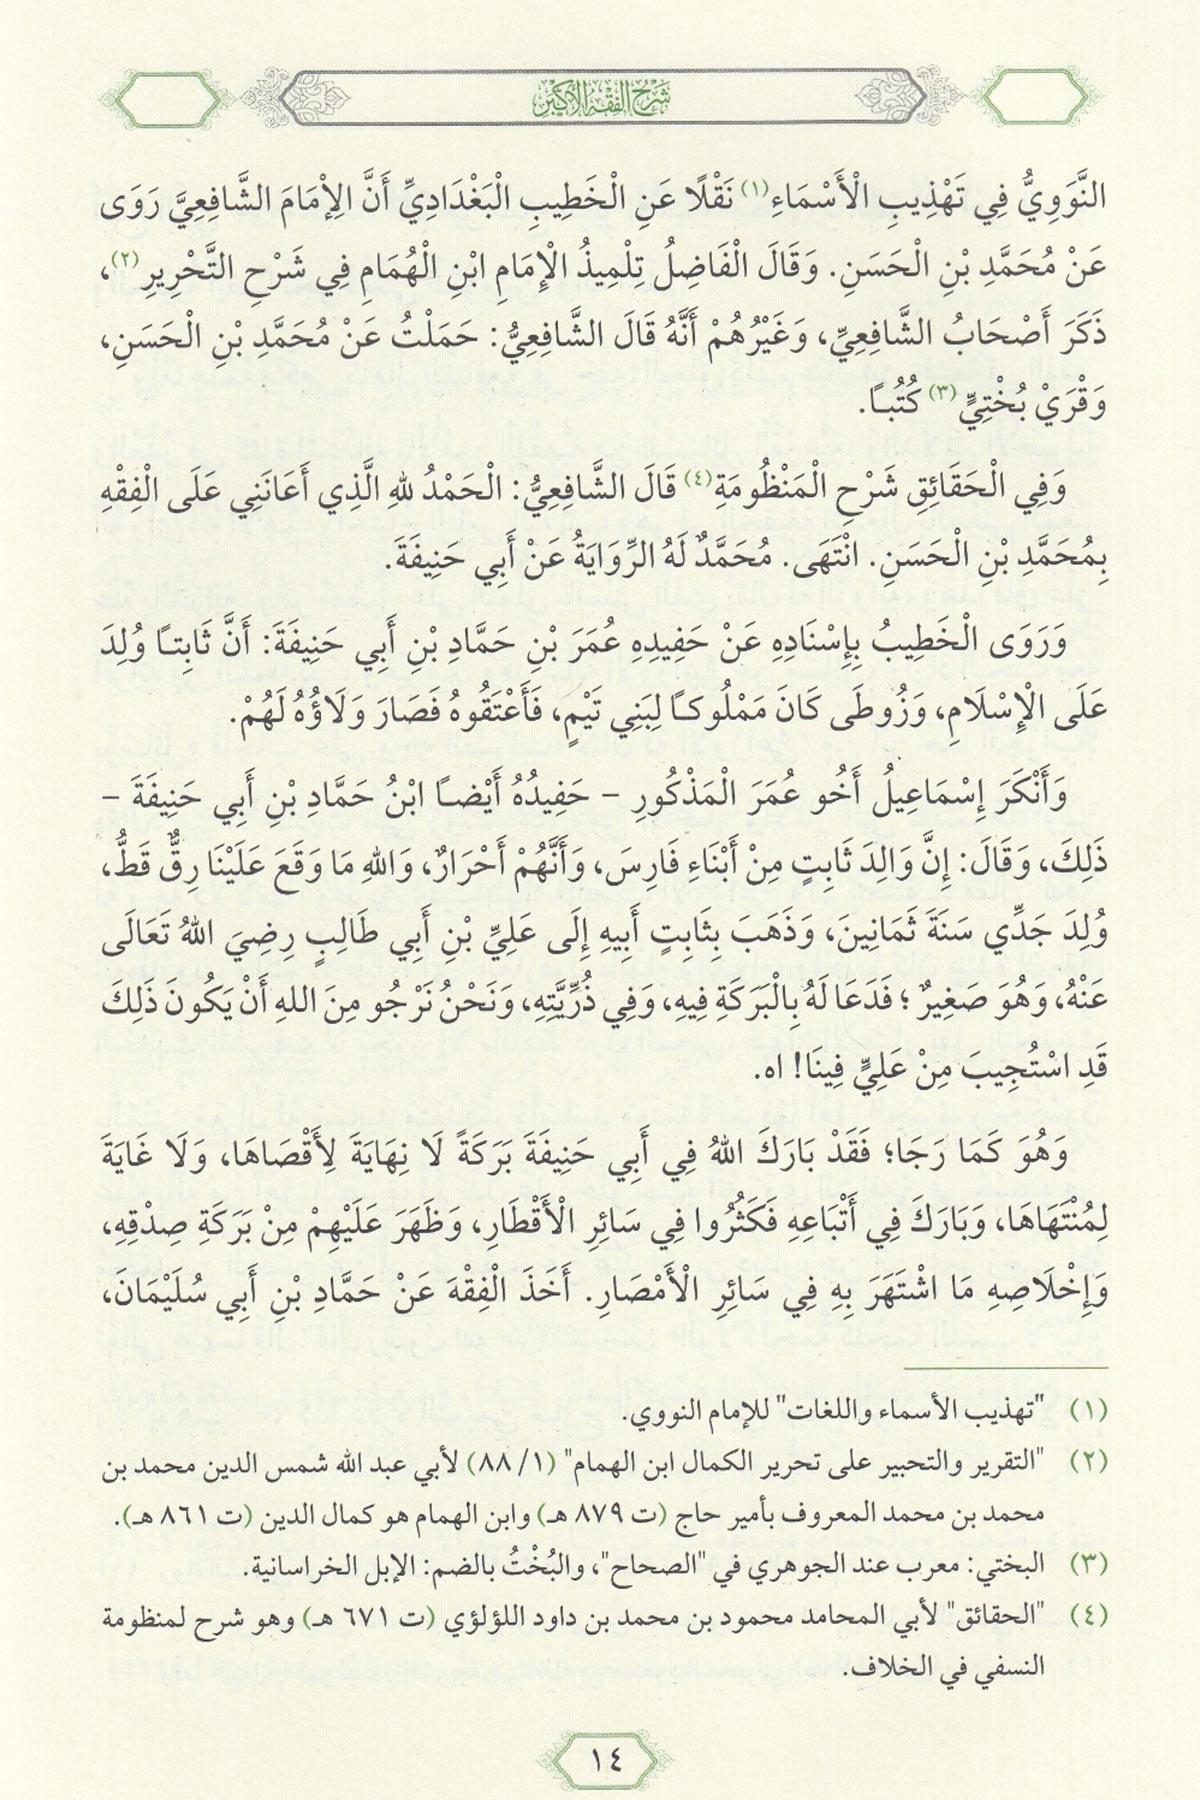 شَرْحُ الْفِقْهِ الْأَكْبَرِ
النَّوَوِيُّ فِي تَهْذِيبِ الْأَسْمَاءِ(١) نَقْلًا عَنِ الْخَطِيبِ الْبَغْدَادِيِّ أَنَّ الْإِمَامَ الشَّافِعِيَّ رَوَى
عَنْ مُحَمَّدِ بْنِ الْحَسَنِ. وَقَالَ الْفَاضِلُ تِلْمِيذُ الْإِمَامِ ابْنِ الْهُمَامِ فِي شَرْحِ التَّحْرِيرِ(٢)،
ذَكَرَ أَصْحَابُ الشَّافِعِيِّ، وَغَيْرُهُمْ أَنَّهُ قَالَ الشَّافِعِيُّ: حَمَلْتُ عَنْ مُحَمَّدِ بْنِ الْحَسَنِ،
وَقْرَيْ بُخْتِيٍّ(٣) كُتُبًا.
وَفِي الْحَقَائِقِ شَرْحِ الْمَنْظُومَةِ(٤) قَالَ الشَّافِعِيُّ: الْحَمْدُ لِلهِ الَّذِي أَعَانَنِي عَلَى الْفِقْهِ
بِمُحَمَّدِ بْنِ الْحَسَنِ. انْتَهَى. مُحَمَّدٌ لَهُ الرِّوَايَةُ عَنْ أَبِي حَنِيفَةَ.
وَرَوَى الْخَطِيبُ بِإِسْنَادِهِ عَنْ حَفِيدِهِ عُمَرَ بْنِ حَمَّادِ بْنِ أَبِي حَنِيفَةَ: أَنَّ ثَابِتًا وُلِدَ
عَلَى الْإِسْلَامِ، وَزُوطَى كَانَ مَمْلُوكًا لِبَنِي تَيْمٍ، فَأَعْتَقُوهُ فَصَارَ وَلَاؤُهُ لَهُمْ.
وَأَنْكَرَ إِسْمَاعِيلُ أَخُو عُمَرَ الْمَذْكُورِ – حَفِيدُهُ أَيْضًا ابْنُ حَمَّادِ بْنِ أَبِي حَنِيفَةَ –
ذَلِكَ، وَقَالَ: إِنَّ وَالِدَ ثَابِتٍ مِنْ أَبْنَاءِ فَارِسَ، وَأَنَّهُمْ أَحْرَارٌ، وَاللهِ مَا وَقَعَ عَلَيْنَا رِقٌّ قَطُّ،
وُلِدَ جَدِّي سَنَةَ ثَمَانِينَ، وَذَهَبَ بِثَابِتٍ أَبِيهِ إِلَى عَلِيِّ بْنِ أَبِي طَالِبٍ رِضِيَ اللهُ تَعَالَى
عَنْهُ، وَهُوَ صَغِيرٌ؛ فَدَعَا لَهُ بِالْبَرَكَةِ فِيهِ، وَفِي ذُرِّيَّتِهِ، وَنَحْنُ نَرْجُو مِنَ اللهِ أَنْ يَكُونَ ذَلِكَ
قَدِ اسْتُجِيبَ مِنْ عَلِيٍّ فِينَا! اه.
وَهُوَ كَمَا رَجَا؛ فَقَدْ بَارَكَ اللهُ فِي أَبِي حَنِيفَةَ بَرَكَةً لَا نِهَايَةَ لِأَقْصَاهَا، وَلَا غَايَةَ
لِمُنْتَهَاهَا، وَبَارَكَ فِي أَتْبَاعِهِ فَكَثُرُوا فِي سَائِرِ الْأَقْطَارِ، وَظَهَرَ عَلَيْهِمْ مِنْ بَرَكَةِ صِدْقِهِ،
وَإِخْلَاصِهِ مَا اشْتَهَرَ بِهِ فِي سَائِرِ الْأَمْصَارِ. أَخَذَ الْفِقْهَ عَنْ حَمَّادِ بْنِ أَبِي سُلَيْمَانَ،
(١) "تهذيب الأسماء واللغات" للإمام النووي.
(٢) "التقرير والتحبير على تحرير الكمال ابن الهمام" (٨٨/١) لأبي عبد الله شمس الدين محمد بن
محمد بن محمد المعروف بأمير حاج (ت ٨٧٩ هـ) وابن الهمام هو كمال الدين (ت ٨٦١ هـ).
(٣) البختي: معرب عند الجوهري في "الصحاح"، والبُخْتُ بالضم: الإبل الخراسانية.
(٤) "الحقائق" لأبي المحامد محمود بن محمد بن داود اللؤلؤي (ت ٦٧١ هـ) وهو شرح لمنظومة
النسفي في الخلاف.
١٤